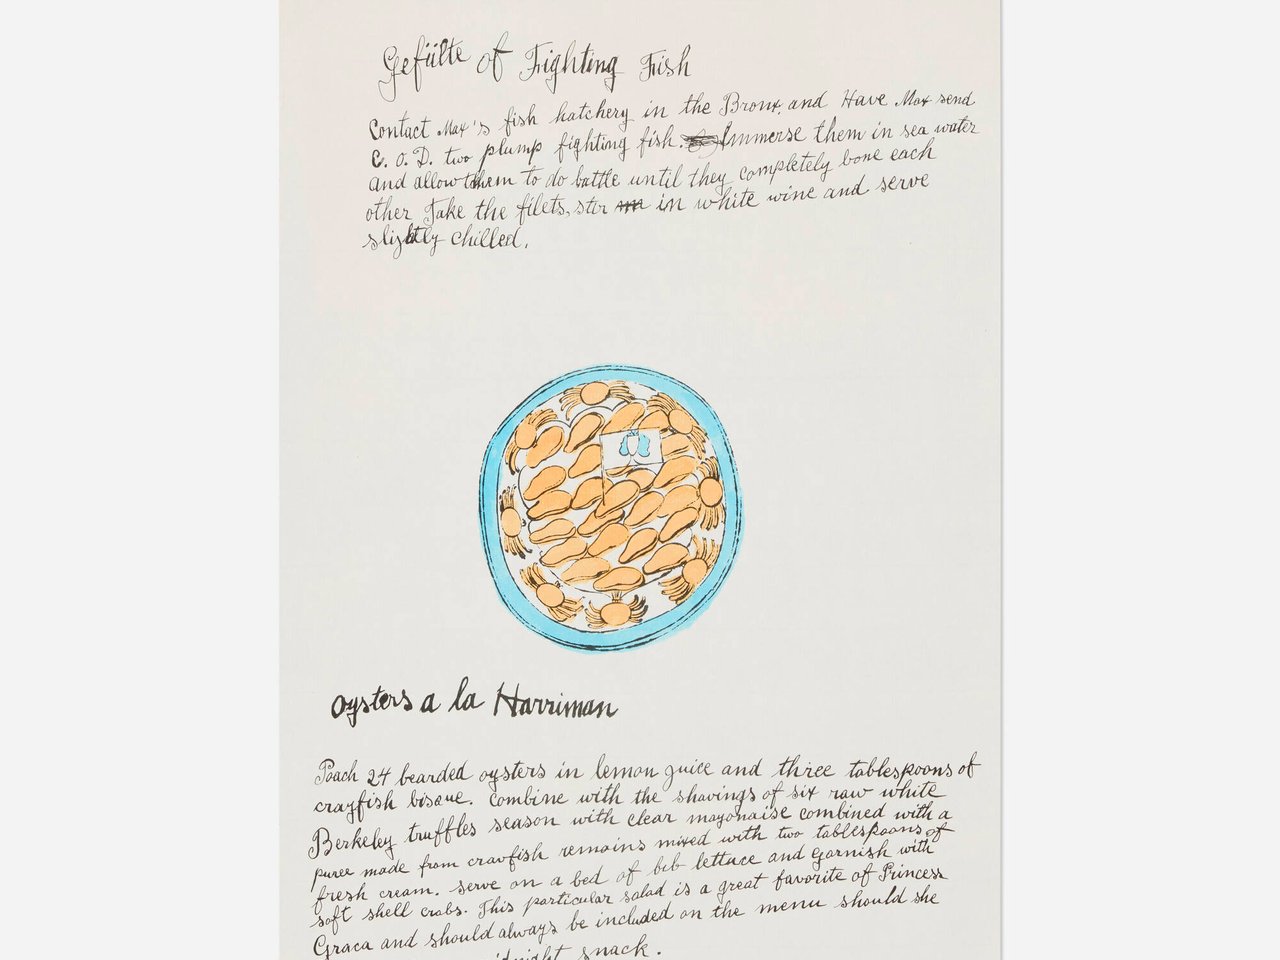 Gefülte of Fighting Fish
Contact Max's fish hatchery in the Bronx, and Have Max send
C. O. D. two plump fighting fish. Immerse them in sea water
and allow them to do battle until they completely bone each
other Take the filets, stir in white wine and serve
slightly chilled.
Oysters a la Harriman
Poach 24 bearded oysters in lemon juice and three tablespoons of
crayfish bisque. Combine with the shavings of six raw white
Berkeley truffles season with clear mayonaise combined with a
puree made from crawfish remains mixed with two tablespoons of
fresh cream. serve on a bed of bib lettuce and garnish with
soft shell crabs. This particular salad is a great favorite of Princess
Graca and should always be included on the menu should she
snack.